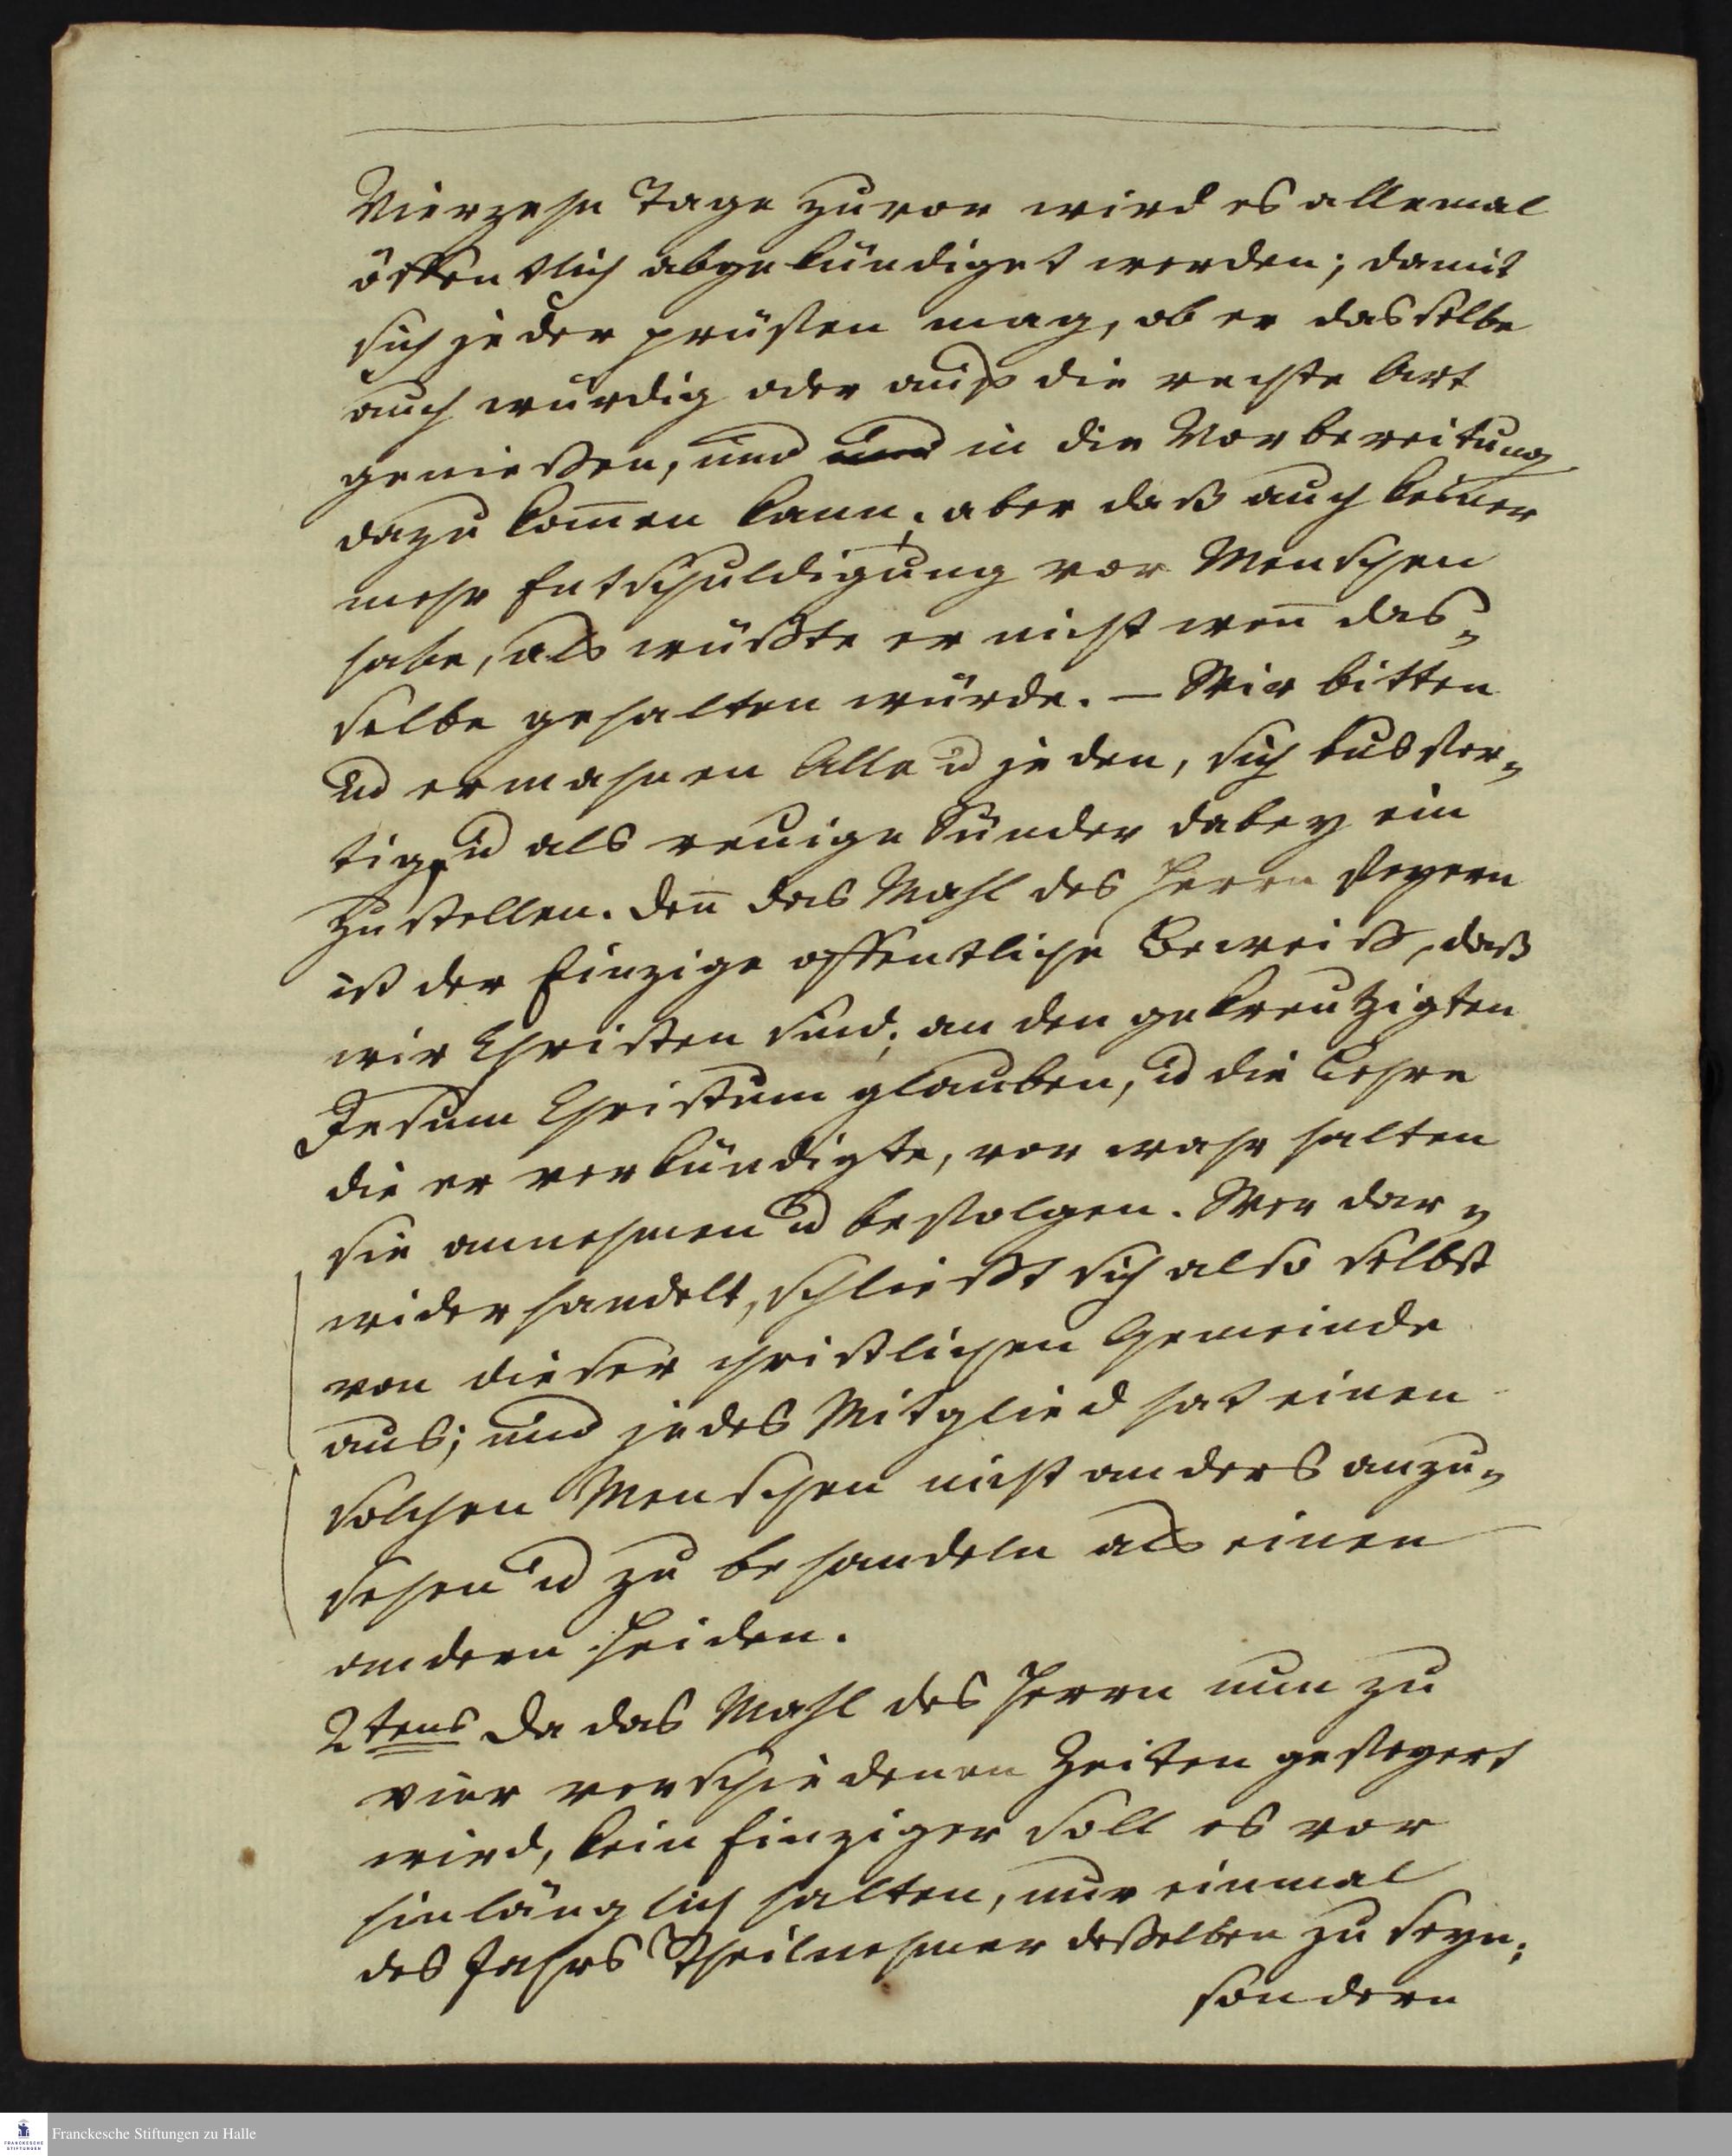 Vierzehn Tage zuvor wird es allemal
öffentlich abgekündiget werden; damit
sich jeder prüfen mag, ob er dasselbe
auch würdig oder auf die rechte Art
genießen, und und in die Vorbereitung
dazu kom̄en kann; aber daß auch keiner
mehr Entschuldigung vor Menschen
habe, als wüßte er nicht wen̄ das-
selbe gehalten würde. – Wir bitten
ud ermahnen Alle ud jeden, sich busfer-
tig, ud als reuige Sünder dabey ein
zustellen. Den̄ das Mahl des Herrn feyern
ist der Einzige offentliche Beweiß, daß
wir Christen sind; an den gekreutzigten
Jesum Christum glauben, ud die Lehre
die er verkündigte, vor wahr halten
sie annehmen ud befolgen. Wer dar-
wider handelt, schließt sich also selbst
von dieser christlichen Gemeinde
aus; und jedes Mitglied hat einen
solchen Menschen nicht anders anzu-
sehen ud zu behandeln als einen
andern Heiden.
2tens Da das Mahl des Herrn nun zu
vier verschiedenen Zeiten gefeyert
wird, kein Einziger soll es vor
hinlänglich halten, nur einmal
des Jahrs Theilnehmer deßelben zu seyn;
sondern
Franckesche Stiftungen zu Halle
FRANCKESCHE
STIFTUNGEN